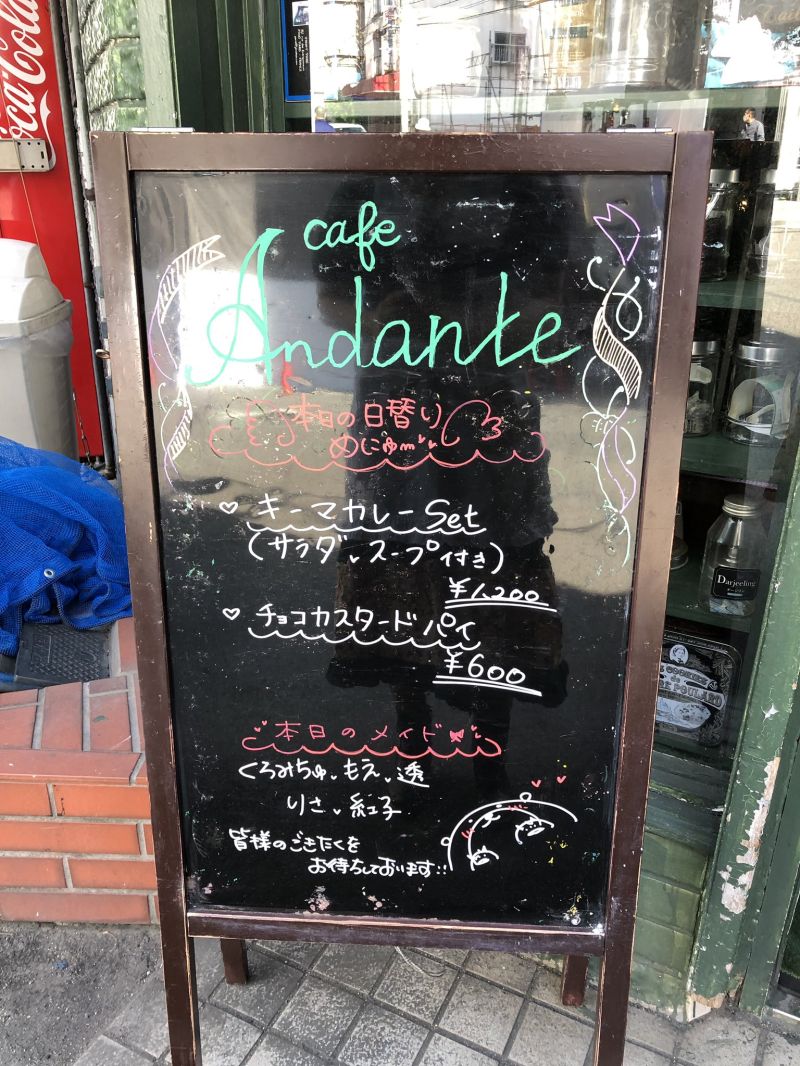 Coca-Cola
cafe
Andante
本日の日替り
めにゅー
♡ キーマカレーSet
(サラダ、スープ付き)
¥1,200
♡ チョコカスタードパイ
¥600
本日のメイド
くろみちゅ、もえ、透
りさ、紅子
皆様のごきたくを
お待ちしております!!
Darjeeling